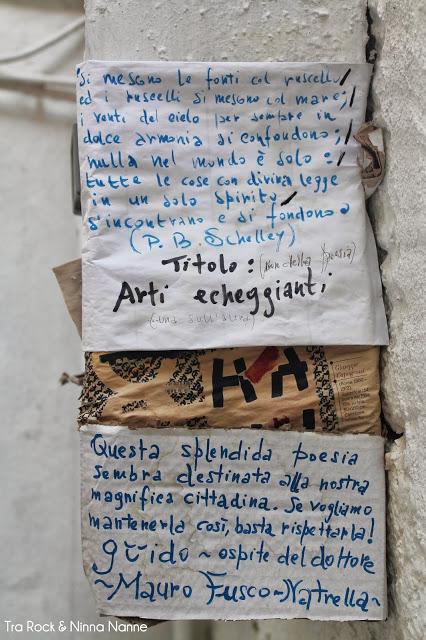 Si mesono le fonti col ruscello,
ed i ruscelli si mesono col mare;
i venti del cielo per sempre in
dolce armonia si confondono;
nulla nel mondo è solo:
tutte le cose con divina legge
in un solo spirito
s'incontrano e si fondono
(P. B. Schelley)
Titolo: (non della poesia)
Arti echeggianti
Questa splendida poesia
sembra destinata alla nostra
magnifica cittadina. Se vogliamo
mantenerla così, basta rispettarla!
guido ~ ospite del dottore
~Mauro Fusco~Natrella~
Tra Rock & Ninna Nanne